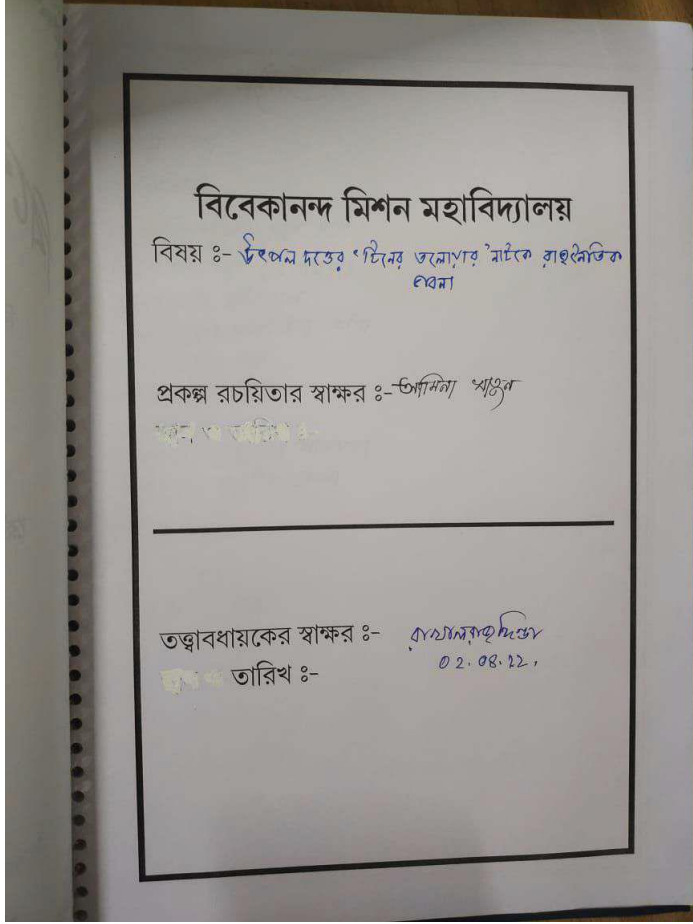 বিবেকানন্দ মিশন মহাবিদ্যালয়
বিষয় ঃ- উৎপল দত্তের 'টিনের তলোয়ার' নাটকে রাজনৈতিক
ভাবনা
প্রকল্প রচয়িতার স্বাক্ষর ঃ- আমিনা খাতুন
তত্ত্বাবধায়কের স্বাক্ষর ঃ-
তারিখ ঃ- 02.08.22.